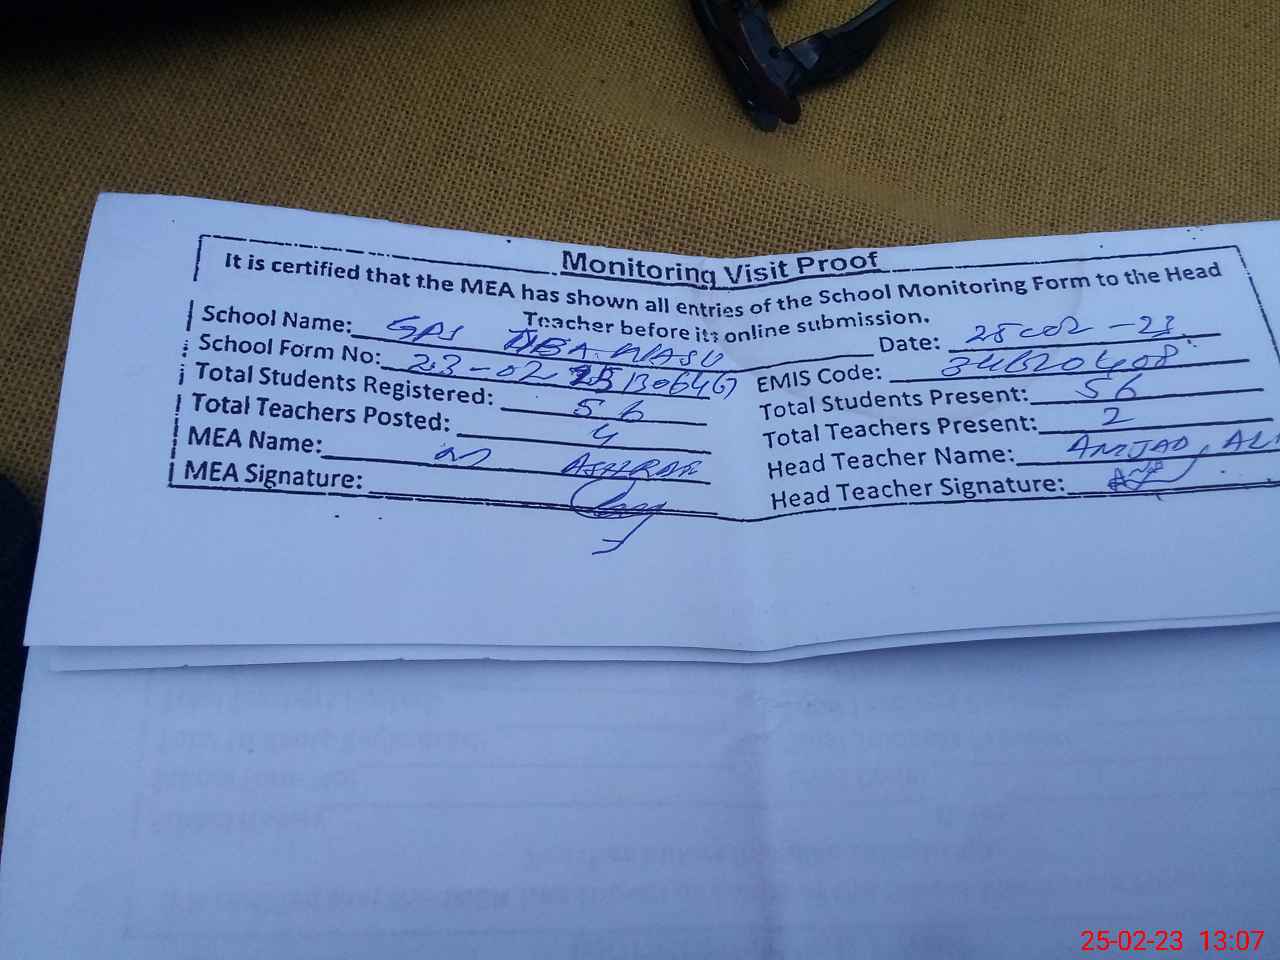 Monitoring Visit Proof
It is certified that the MEA has shown all entries of the School Monitoring Form to the Head
Teacher before its online submission.
School Name: GPS
Date: 25-02-23
School Form No: 23-02
EMIS Code:
Total Students Registered: 56
Total Students Present: 56
Total Teachers Posted: 4
Total Teachers Present: 2
MEA Name: M ASHRAF
Head Teacher Name: AMJAD ALI
MEA Signature:
Head Teacher Signature:
25-02-23 13:07